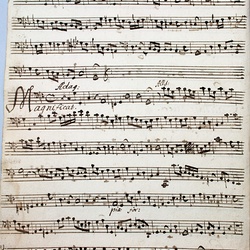 Adag.
All:
Magnificat.
pia
for: